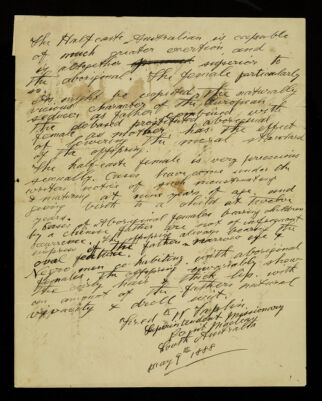 The Half-caste Australian is capable
of much greater exertion and
is altogether superior to
the aboriginal. The female particularly
so.
As might be expected, the naturally
vicious character of the European
seducer as father combined with
the degraded aboriginal
female as mother has the effect
of lowering the moral standard
of the offspring.
The half-caste female is very precocious
sexually. Cases have come under the
writers notice of menstruating
& maturing at nine years of age, and
giving birth to a child at twelve
years.
Cases of Aboriginal females bearing children
by a Chinese father are not of infrequent
occurrence. The offspring always bearing the
impress of the fathers narrow eye &
oval feature.
Negro men co habiting with aboriginal
females the offspring invariably shows
the curly hair & thick lips with
an amount of the fathers natural
& droll wit.
Fred W Taplin
Superintendent Missionary
Point Macleay
South Australia
May 9th 1888